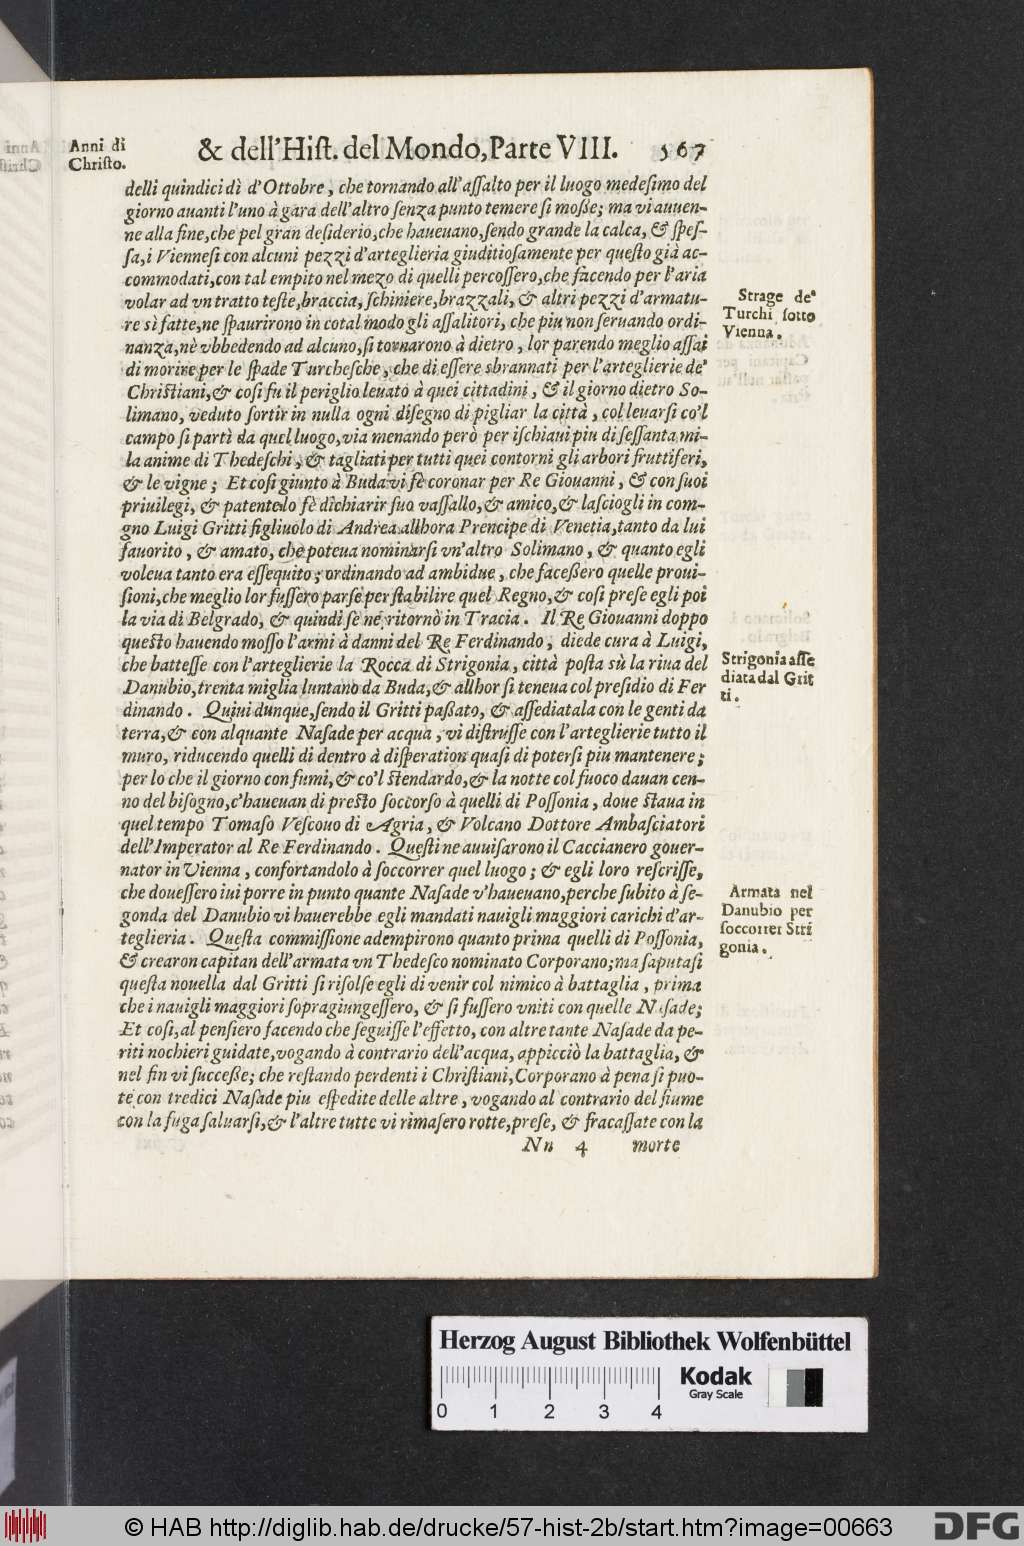 Anni di
Chriſto.
& dell'Hiſt. del Mondo, Parte VIII. 567
delli quindici dì d'Ottobre, che tornando all'aſſalto per il luogo medeſimo del
giorno auanti l'uno à gara dell'altro ſenza punto temere ſi moße; ma vi auuen-
ne alla fine, che pel gran deſiderio, che haueuano, ſendo grande la calca, & ſpeſ-
ſa, i Vienneſi con alcuni pezzi d'arteglieria giuditioſamente per queſto già ac-
commodati, con tal empito nel mezo di quelli percoſſero, che facendo per l'aria
volar ad vn tratto teſte, braccia, ſchiniere, brazzali, & altri pezzi d'armatu-
re sì fatte, ne ſpaurirono in cotal modo gli aſſalitori, che piu non ſeruando ordi-
nanza, nè vbbedendo ad alcuno, ſi tornarono à dietro, lor parendo meglio aſſai
di morire per le ſpade Turcheſche, che di eſſere sbrannati per l'arteglierie de'
Chriſtiani, & coſi fu il periglio leuato à quei cittadini, & il giorno dietro So-
limano, veduto ſortir in nulla ogni diſegno di pigliar la città, col leuarſi co'l
campo ſi partì da quel luogo, via menando però per iſchiaui piu di ſeſſanta mi-
la anime di Thedeſchi, & tagliati per tutti quei contorni gli arbori fruttiferi,
& le vigne; Et coſi giunto à Buda vi fè coronar per Re Giouanni, & con ſuoi
priuilegi, & patente lo fè dichiarir ſuo vaſſallo, & amico, & laſciogli in com-
gno Luigi Gritti figliuolo di Andrea allhora Prencipe di Venetia, tanto da lui
fauorito, & amato, che poteua nominarſi vn'altro Solimano, & quanto egli
voleua tanto era eſſequito; ordinando ad ambidue, che faceßero quelle proui-
ſioni, che meglio lor fuſſero parſe per ſtabilire quel Regno, & coſi preſe egli poi
la via di Belgrado, & quindi ſe nè ritornò in Tracia. Il Re Giouanni doppo
queſto hauendo moſſo l'armi à danni del Re Ferdinando, diede cura à Luigi,
che batteſſe con l'arteglierie la Rocca di Strigonia, città poſta sù la riua del
Danubio, trenta miglia luntano da Buda, & allhor ſi teneua col preſidio di Fer
dinando. Quiui dunque, ſendo il Gritti paßato, & aſſediatala con le genti da
terra, & con alquante Naſade per acqua, vi diſtruſſe con l'arteglierie tutto il
muro, riducendo quelli di dentro à diſperation quaſi di poterſi piu mantenere;
per lo che il giorno con fumi, & co'l ſtendardo, & la notte col fuoco dauan cen-
no del biſogno, c'haueuan di preſto ſoccorſo à quelli di Poſſonia, doue ſtaua in
quel tempo Tomaſo Veſcouo di Agria, & Volcano Dottore Ambaſciatori
dell'Imperator al Re Ferdinando. Queſti ne auuiſarono il Caccianero gouer-
nator in Vienna, confortandolo à ſoccorrer quel luogo; & egli loro reſcriſſe,
che doueſſero iui porre in punto quante Naſade v'haueuano, perche ſubito à ſe-
gonda del Danubio vi hauerebbe egli mandati nauigli maggiori carichi d'ar-
teglieria. Queſta commiſſione adempirono quanto prima quelli di Poſſonia,
& crearon capitan dell'armata vn Thedeſco nominato Corporano; ma ſaputaſi
queſta nouella dal Gritti ſi riſolſe egli di venir col nimico à battaglia, prima
che i nauigli maggiori ſopragiungeſſero, & ſi fuſſero vniti con quelle Naſade;
Et coſi, al penſiero facendo che ſeguiſſe l'effetto, con altre tante Naſade da pe-
riti nochieri guidate, vogando à contrario dell'acqua, appicciò la battaglia, &
nel fin vi ſucceße; che reſtando perdenti i Chriſtiani, Corporano à pena ſi puo-
te con tredici Naſade piu eſpedite delle altre, vogando al contrario del fiume
con la fuga ſaluarſi, & l'altre tutte vi rimaſero rotte, preſe, & fracaſſate con la
Nn 4 morte
Strage de'
Turchi ſotto
Vienna.
Strigonia aſſe
diata dal Grit
ti.
Armata nel
Danubio per
ſoccorrer Stri
gonia.
Herzog August Bibliothek Wolfenbüttel
Kodak
Gray Scale
0 1 2 3 4
© HAB http://diglib.hab.de/drucke/57-hist-2b/start.htm?image=00663
DFG